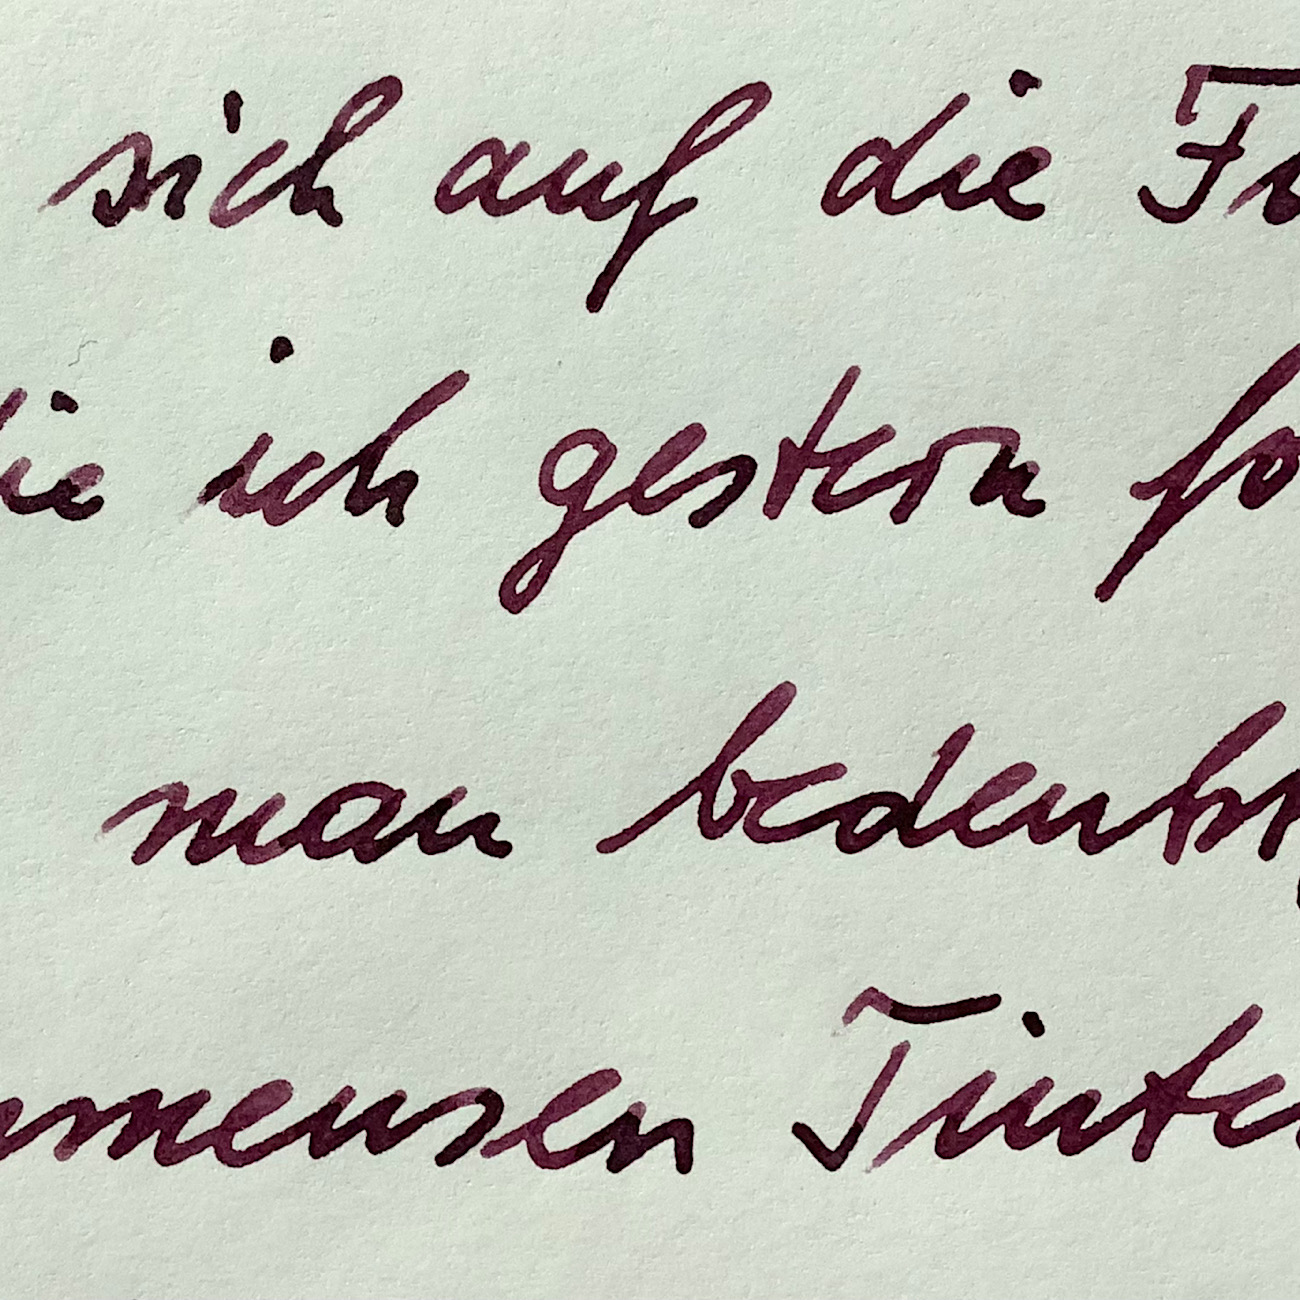 sich auf die Fü
die ich gestern fo
man bedenkt
mmensen Tinte